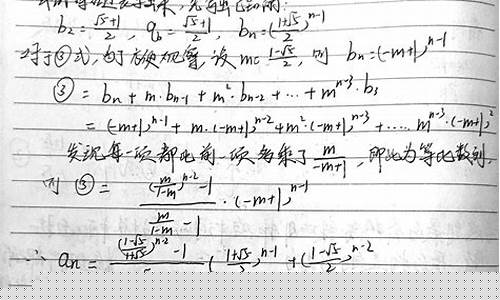 b₂ = (√5+1)/2 , q_b = (√5+1)/2 , b_n = ((1+√5)/2)^(n-1)
对于③式，由于 ，设 m = (1-√5)/2 ，则 b_n = (-m+1)^(n-1)
③ = b_n + m·b_(n-1) + m²·b_(n-2) + … + m^(n-3)·b₃
= (-m+1)^(n-1) + m·(-m+1)^(n-2) + m²·(-m+1)^(n-3) + ….. m^(n-3)·(-m+1)²
发现每一项都比前一项多乘了 m/(-m+1) ，即此为等比数列.
则 ③ = ((m/(1-m))^(n-2) - 1)/(m/(1-m) - 1) · (-m+1)^(n-1)
∴ a_n = (((1-√5)/(1+√5))^(n-2) - 1) ((1+√5)/2)^(n-1) + ((1-√5)/2)^(n-2)